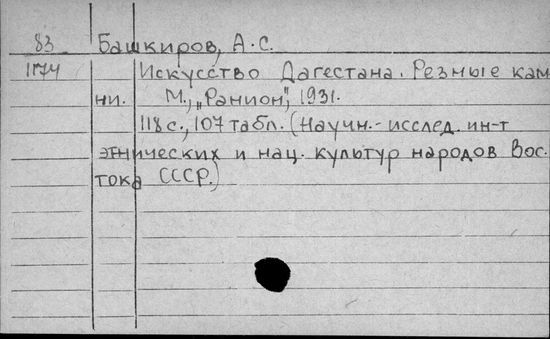 83 Башкиров, А.С.
1174 Искусство Дагестана. Резные кам
ни. М., „Ранион", 1931.
118 с., 107 табл. (Научн.-исслед. ин-т
этнических и нац. культур народов Вос.
тока СССР.)